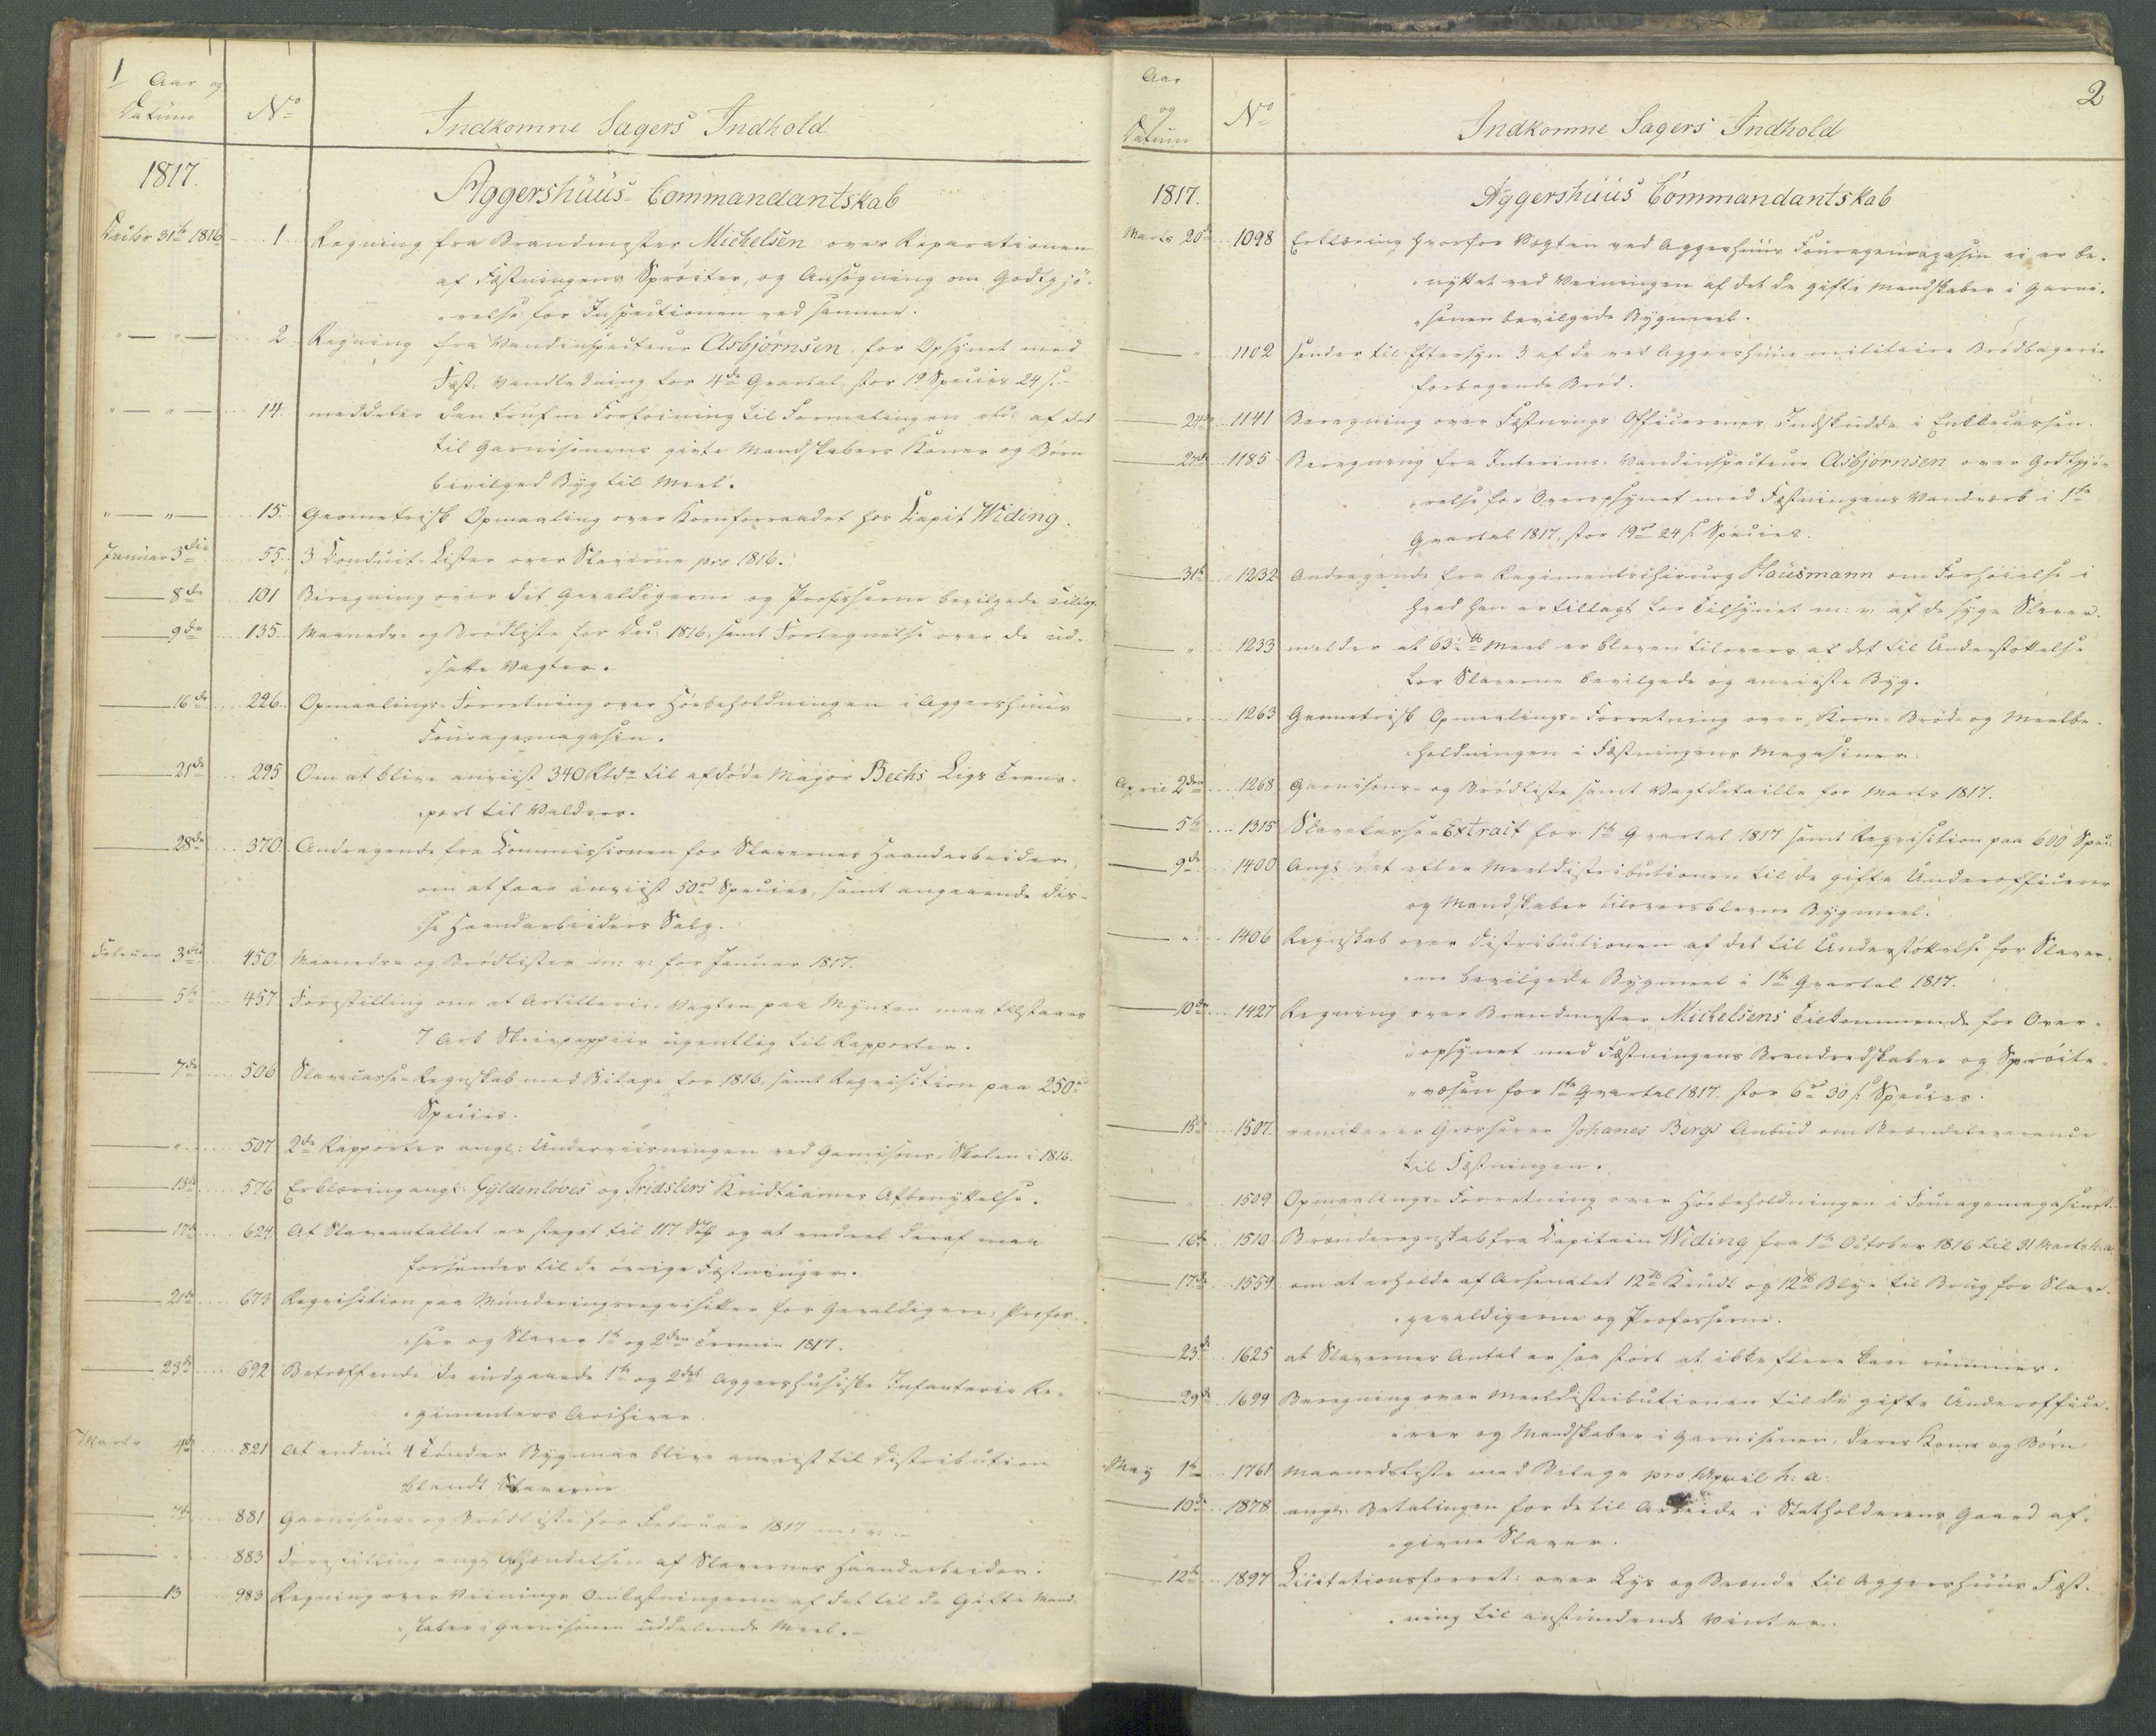 1
Aar og
Datum
No
Indkomne Sagers Indhold
1817.
Aggershuus Commandantskab
Decbr 31te 1816 1 Regning fra Brandmester Michelsen over Reparationen
af Fæstningens Sprøiter, og Ansøgning om Godtgjö-
relse for Inspectionen ved samme.
" — " — 2 Regning fra Vandinspecteur Asbjørnsen, for Opsynet med
Fæst: Vandledning for 4de Qvartal, stor 19 Species 24 s.
" — " — 14. meddeler den trufne Forføining til Formalingen etc: af det
til Garnisonens givte Mandskabers Koner og Børn
bevilged Byg til Meel.
" — " — 15. Geometrisk Opmaaling over Kornforraadet hos Capit Widing.
Januar 3die 55. 3 Conduit-Lister over Slaverne pro 1816.
8de 101 Beregning over det Gevaldigerne og Profosserne bevilgede Tillæg.
9de 135. Maaneds- og Brödliste for Dec: 1816, samt Fortegnelse over de ud-
satte Vagter.
16de 226. Opmaalings-Forretning over Höebeholdningen i Aggershuus
Fouragemagasin.
21de 295 Om at blive anviist 340 Rbdr til afdöde Major Bechs Ligs Trans-
port til Valders.
28de 370. Andragende fra Commissionen for Slavernes Haandarbeider,
om at faae anviist 50 Species, samt angaaende dis-
se Haandarbeiders Salg.
Februar 3die 450. Maaneds- og Brödlister m: v: for Januar 1817.
5te 457 Forestilling om at Artillerie-Vagten paa Mynten maa tilstaaes
7 Ark Skrivpapiir ugentlig til Rapporter.
7de 506 Slavecasse-Regnskab med Bilage for 1816, samt Reqvisition paa 250
Species.
" 507 2de Rapporter angl: Underviisningen ved Garnisons-Skolen i 1816.
13de 576 Erklæring angl: Gyldenløves og Tridslers Krudttaarnes Afbenyttelse.
17de 624 At Slaveantallet er steget til 117 Stk og at endeel deraf maa
forsendes til de øvrige Fæstninger.
21de 673 Reqvisition paa Munderingsreqvisitter for Gevaldigere, Profos-
ser og Slaver 1te og 2den Termin 1817.
23de 692 Betræffende de indgaaede 1te og 2det Aggershusiske Infanterie Re-
gimenters Archiver.
Marts 4de 821 At endnu 4 Tönder Byg maa blive anviist til Distribution
blandt Slaverne
7de 881 Garnisons- og Brödliste for Februar 1817 m: v: -
883 Forestilling angl: Afhændelsen af Slavernes Haandarbeider.
13 983 Regning over Veinings Omkostningerne af det til de Gifte Mand-
skaber i Garnisonen uddelende Meel. -
2
Aar
og
Datum
No
Indkomne Sagers Indhold
1817.
Aggershuus Commandantskab
Marts 20de 1098 Erklæring hvorfor Vægten ved Aggershuus Fouragemagasin ei er be-
nyttet ved Veiningen af det de gifte Mandskaber i Garni-
sonen bevilgede Bygmeel.
" 1102 sender til Eftersyn 3 af de ved Aggershuus militaire Brödbagerie
forbagende Bröd.
24de 1141 Beregning over Fæstnings Officerernes Indskudde i Enkecassen.
27de 1185 Beregning fra Interims-Vandinspecteur Asbjørnsen over Godtgjö-
relse for Overopsynet med Fæstningens Vandværk i 1te
Qvartal 1817, stor 19 24 s Species.
31te 1232 Andragende fra Regimentschirurg Hausmann om Forhøielse i
hvad han er tillagt for Tilsynet m: v: af de syge Slaver.
" 1233 melder at 63 Meel er bleven tilovers af det til Understøttelse
for Slaverne bevilgede og anviiste Byg.
" 1263 Geometrisk Opmaalings-Forretning over Korn- Bröd- og Meelbe-
holdningen i Fæstningens Magasiner.
April 2den 1268 Garnisons- og Brödliste samt Vagtdetaille for Marts 1817.
5te 1315 Slavekasse-Extract for 1te Qvartal 1817 samt Reqvisition paa 600 Spec:
9de 1400 Angl: det efter Meeldistributionen til de gifte Underofficerer
og Mandskaber tiloversblevne Bygmeel.
" 1406 Regnskab over Distributionen af det til Understøttelse for Slaver-
ne bevilgede Bygmeel i 1te Qvartal 1817.
10de 1427 Regning over Brandmester Michelsens Tilkommende for Over-
opsynet med Fæstningens Brandredskaber og Sprøite-
væsen for 1te Qvartal 1817. stor 6 30 s Species.
15de 1507. remitterer Grosserer Johanes Bergs Anbud om Brændeleverance
til Fæstningen.
1509 Opmaalings-Forretning over Höebeholdningen i Fouragemagasinet.
16de 1510 Brænderegnskab fra Capitain Widing fra 1te October 1816 til 31 Marts h: a:
17de 1559 om at erholde af Arsenalet 12 Krudt og 12 Blye til Brug for Slave-
gevaldigerne og Profosserne.
23de 1625 at Slavernes Antal er saa stort at ikke flere kan rummes.
29de 1699 Beregning over Meeldistributionen til de gifte Underoffice-
rer og Mandskaber i Garnisonen, deres Koner og Børn
May 1te 1761 Maanedsliste med Bilage pro April h: a:
10de 1878 angl: Betalingen for de til Arbeide i Statholderens Gaard af-
givne Slaver.
12te 1897 Licitationsforret: over Lys og Brænde til Aggershuus Fæst-
ning til anstundende Vinter.